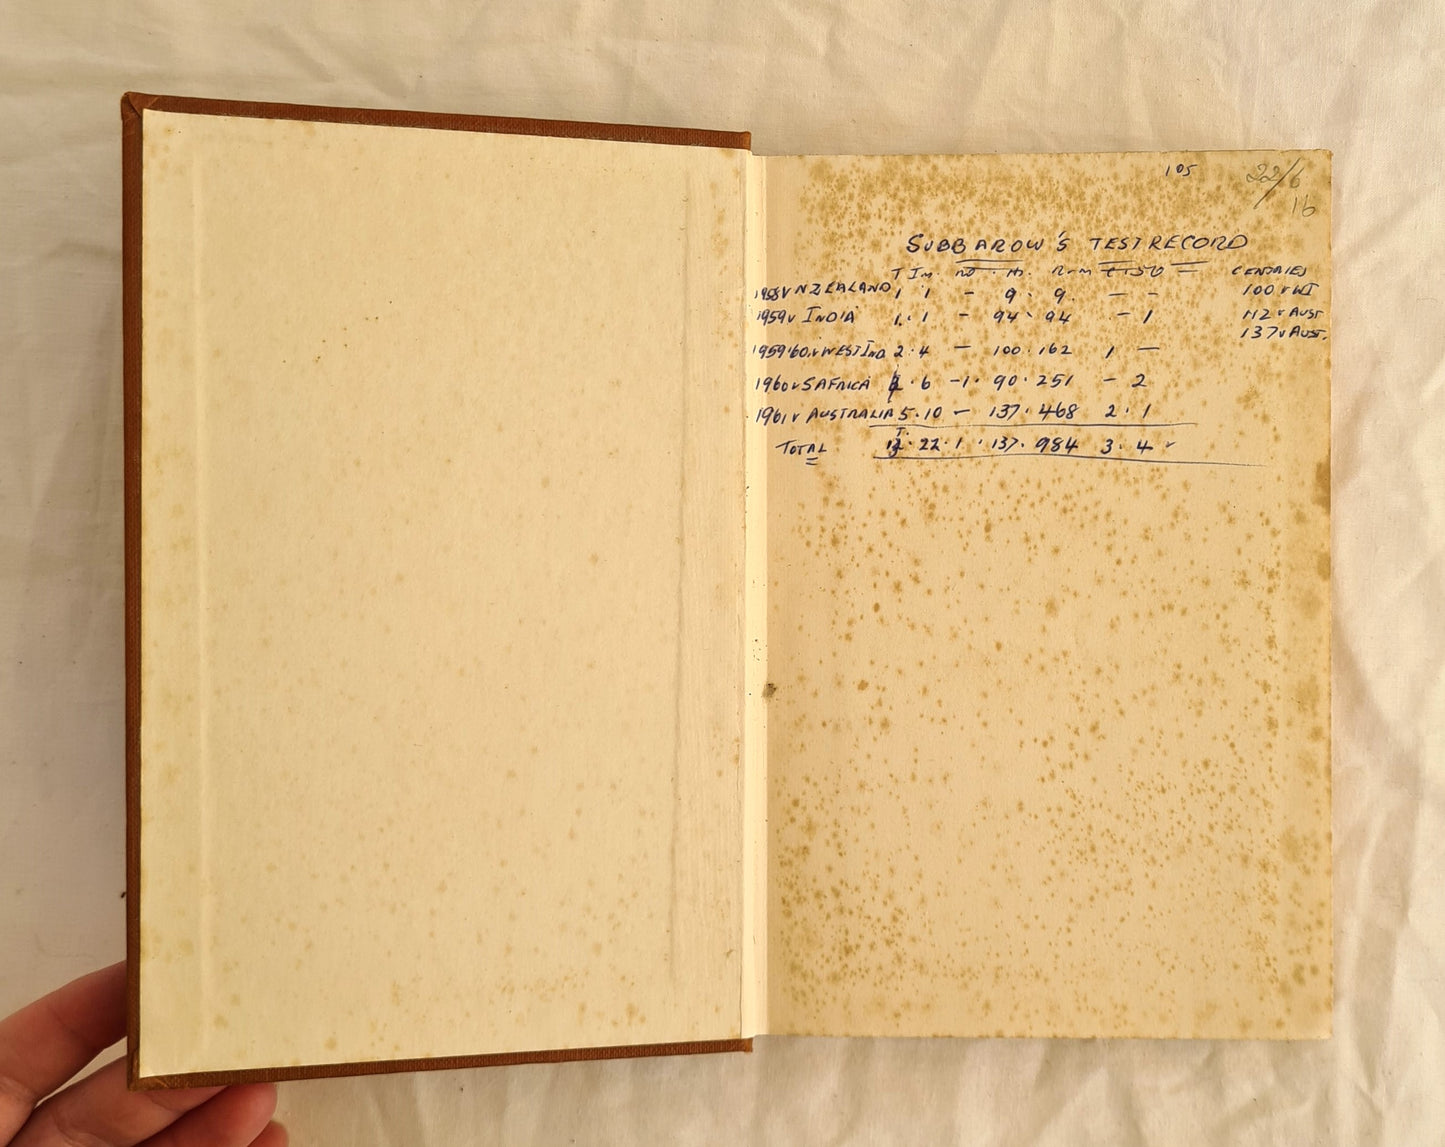 105
22/6
16
SUBBAROW'S TEST RECORD
T In. no. Hs. Run C 50 CENTURIES
1958 v N ZEALAND 1 1 - 9. 9. - - 100 v WI
1959 v INDIA 1. 1 - 94. 94 - 1 112 v AUST
137 v AUST.
1959.60. v WEST IND 2. 4 - 100. 162 1 -
1960 v S AFRICA 4. 6 -1. 90. 251 - 2
1961 v AUSTRALIA 5. 10 - 137. 468 2. 1
TOTAL 13. 22. 1. 137. 984 3. 4